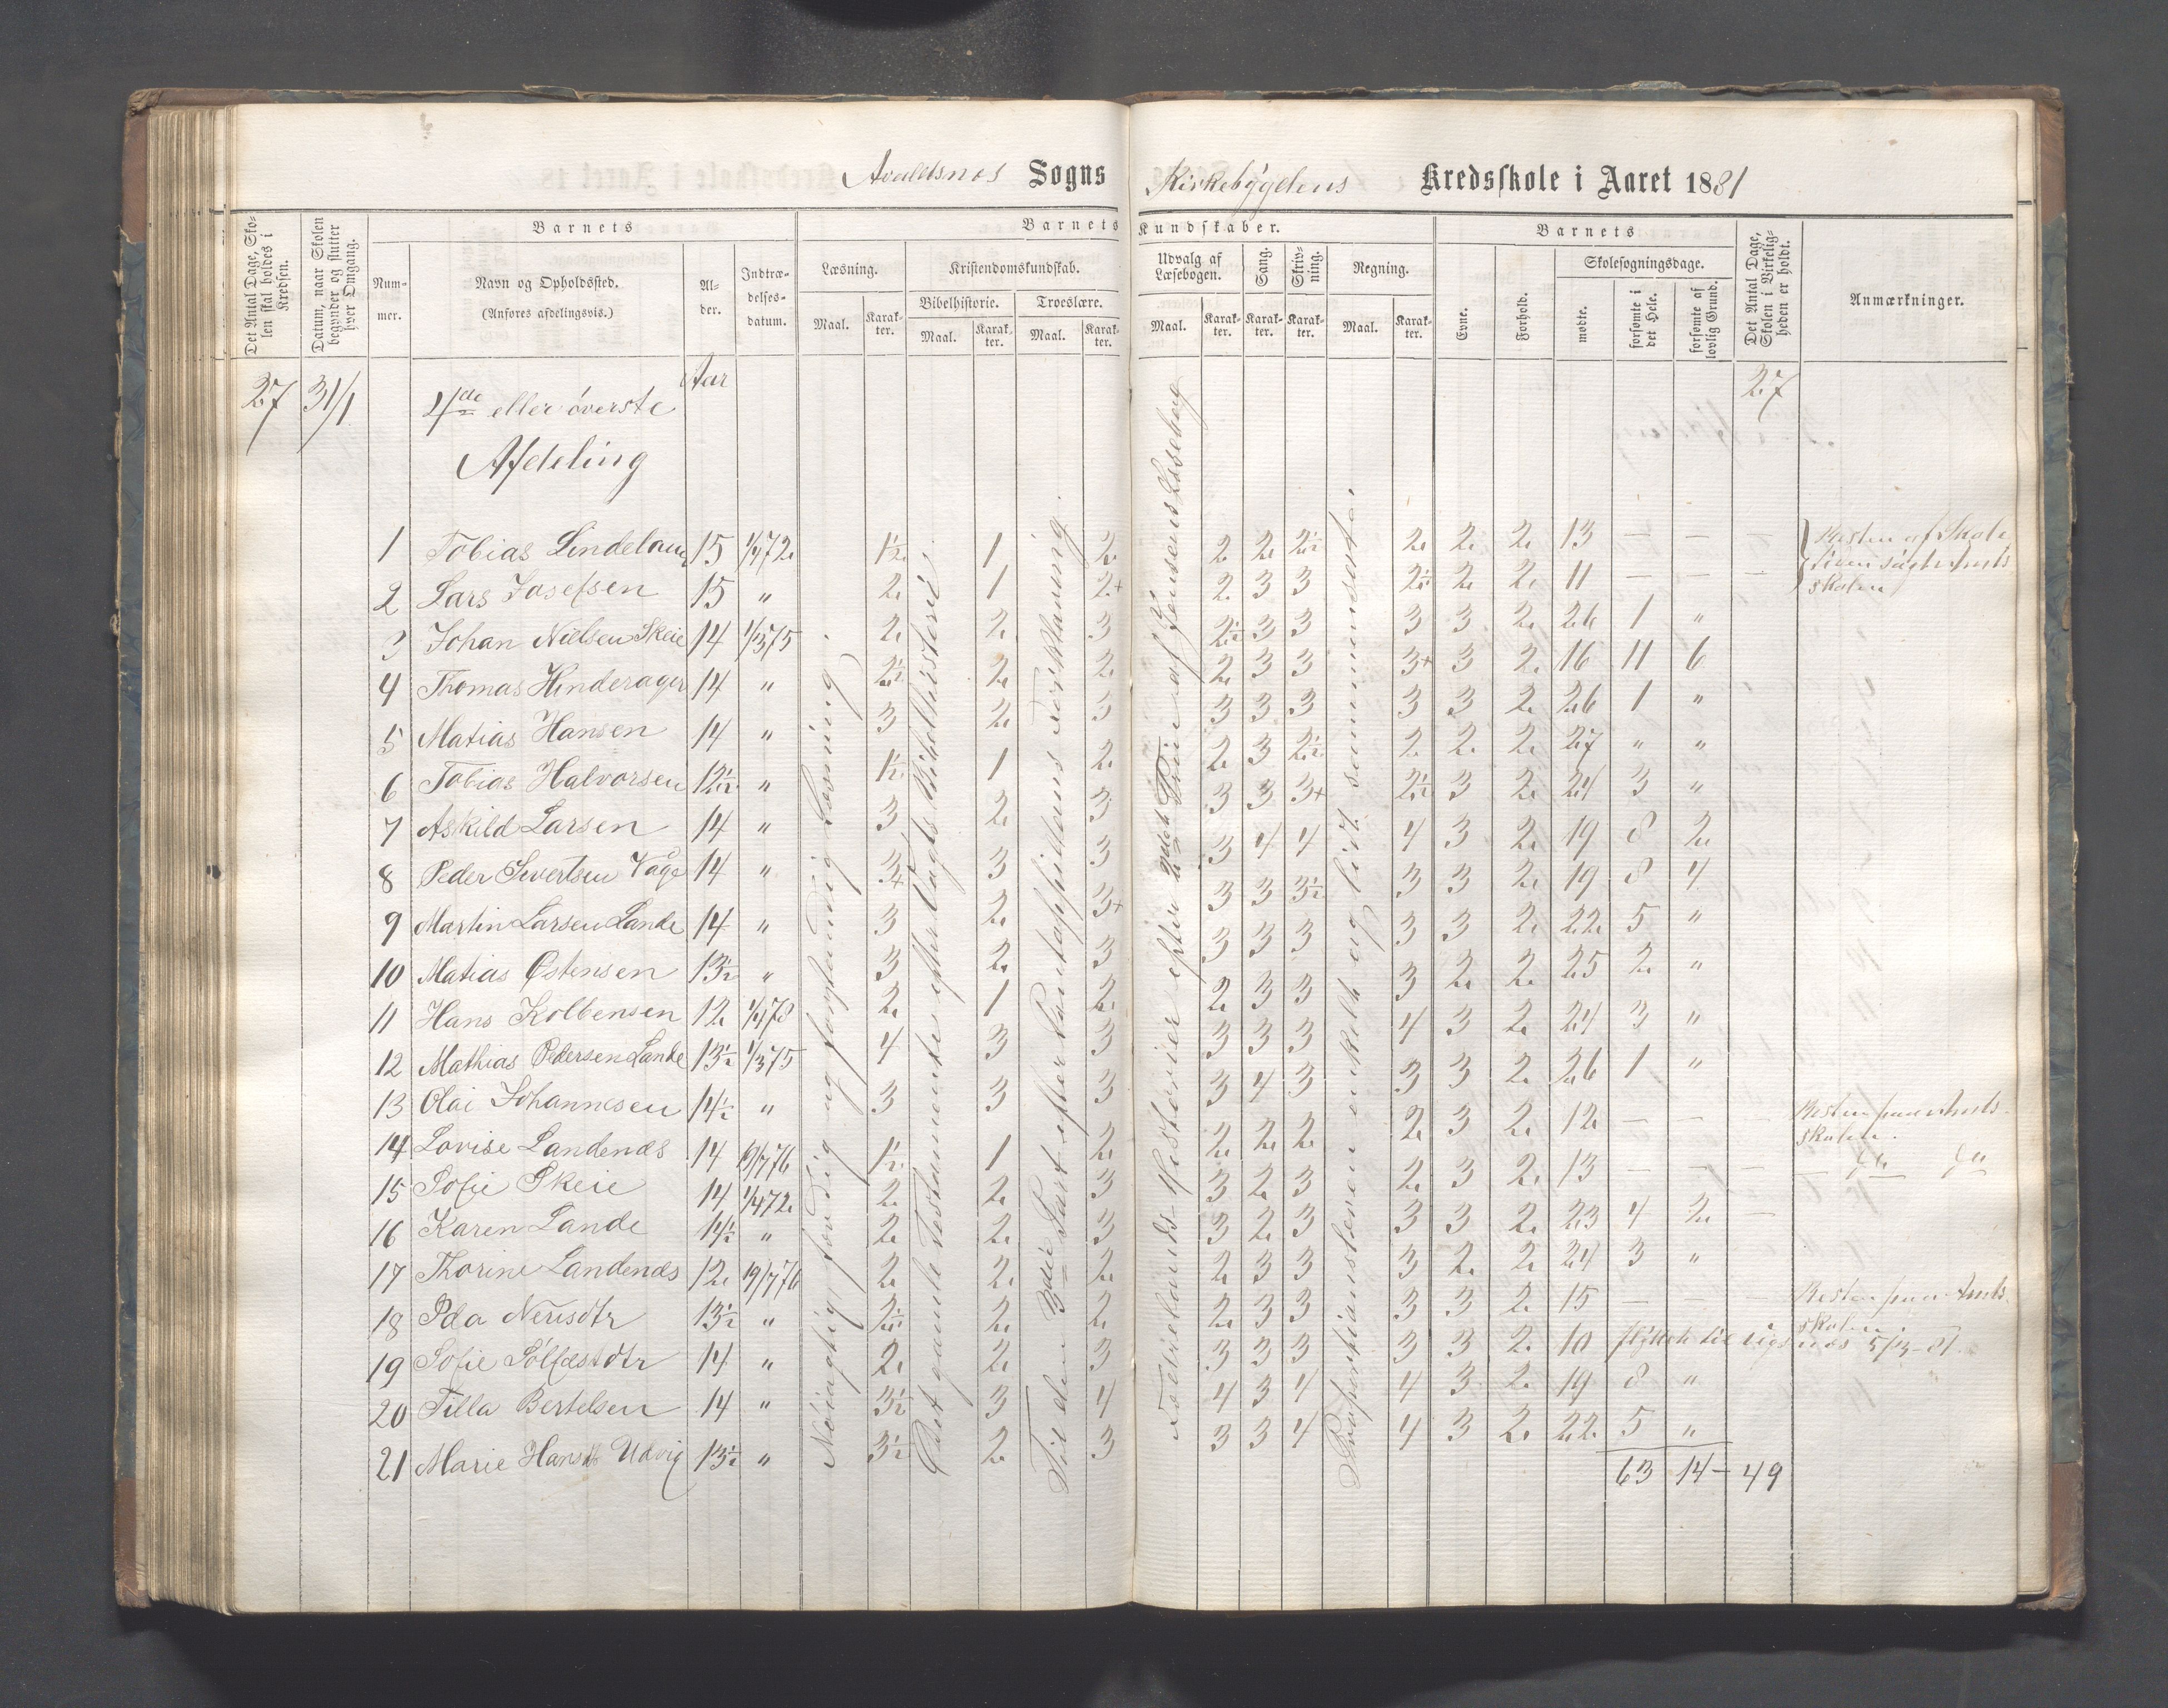 Avaldsnes Sogns Kirkebygdens Kredsskole i Aaret 1881
Det Antal Dage, Skolen skal holdes i Kredsen.
Datum, naar Skolen begynder og slutter hver Omgang.
Barnets
Num-
mer.
Navn og Opholdssted.
(Anføres afdelingsvis.)
Al-
der.
Indtræ-
delses-
datum.
Barnets Kundskaber.
Læsning.
Maal. Karak-
ter.
Kristendomskundskab.
Bibelhistorie. Troeslære.
Maal. Karak-
ter. Maal. Karak-
ter.
Udvalg af
Læsebogen.
Maal. Karak-
ter.
Sang.
Karak-
ter.
Skriv-
ning.
Karak-
ter.
Regning.
Maal. Karak-
ter.
Barnets
Evne.
Forhold.
Skolesøgningsdage.
mødte.
forsømte i det Hele.
forsømte af lovlig Grund.
Det Antal Dage, Skolen i Virkeligheden er holdt.
Anmærkninger.
27 31/1 4de eller øverste Aar 27
Afdeling
1 Tobias 15 1/1 72 1½ 1 2 2 2 2½ 2 2 2 13 — — — Resten af Skole
2 Lars Josefsen 15 " 2 1 2+ 2 3 3 2½ 2 2 11 — — — skolen
3 Johan Nielsen Skeie 14 1/3 75 2 2 3 2½ 3 3 3 3 2 26 1 "
4 Thomas Hinderager 14 " 2½ 2 2 2 3 3 3+ 3 2 16 11 6
5 Matias Hansen 14 " 3 2 3 3 3 3 3 3 2 26 1 "
6 Tobias Halvorsen 12½ " 1½ 1 2 2 3 2½ 2 2 2 27 " "
7 Askild Larsen 14 " 3 2 3 3 3 3+ 2½ 3 2 24 3 "
8 Peder Sivertsen Våge 14 " 3+ 3 3 3 4 4 4 3 2 19 8 2
9 Martin Larsen Lande 14 " 3 2 3+ 3 3 3½ 3 3 2 19 8 4
10 Matias Østensen 13½ " 3 2 3 3 3 3 3 3 2 22 5 "
11 Hans Kolbensen 12 1/4 78 2 1 2 2 3 3 3 2 2 25 2 "
12 Mathias Pedersen Lande 13½ 1/3 75 4 3 3 3 3 3 4 3 2 24 3 "
13 Olai Johannesen 14½ " 3 3 3 3 4 3 3 3 2 26 1 "
14 Lovise Landenæs 14 19/7 76 1½ 1 2 2 2 2 2 3 2 12 — — Resten paa Amts-
skolen.
15 Sofie Skeie 14 1/4 72 2 2 3 3 2 3 2 3 2 13 — — —
16 Karen Lande 14½ " 2 2 3 3 2 3 3 3 2 23 4 2 —
17 Thorine Landenæs 12 19/7 76 2 2 2 2 3 3 3 2 2 24 3 "
18 Ida 13½ " 2½ 2 2 2 3 3 3 3 2 15 — — — Resten paa Amts-
skolen.
19 Sofie Solfæstdtr 14 " 2 2 3 3 3 3 3 3 2 10 flyttet til 5/3-81.
20 Tilla Bertelsen 14 " 3½ 3 4 4 3 4 4 3 2 19 8 "
21 Marie Hansdt Udvig 13½ " 3½ 2 3 3 3 4 4 3 2 22 5 "
63 14 — 49
Nøiagtig, færdig og forstandig Læsning.
Det gamle Testamente efter Vogts Bibelhistorie.
Til den 3die Part efter Pontoppidans Forklaring.
Fædrelands-Historier efter 2det Trin af Jensens Læsebog
Proportionslæren enkelt og lidt sammensat.